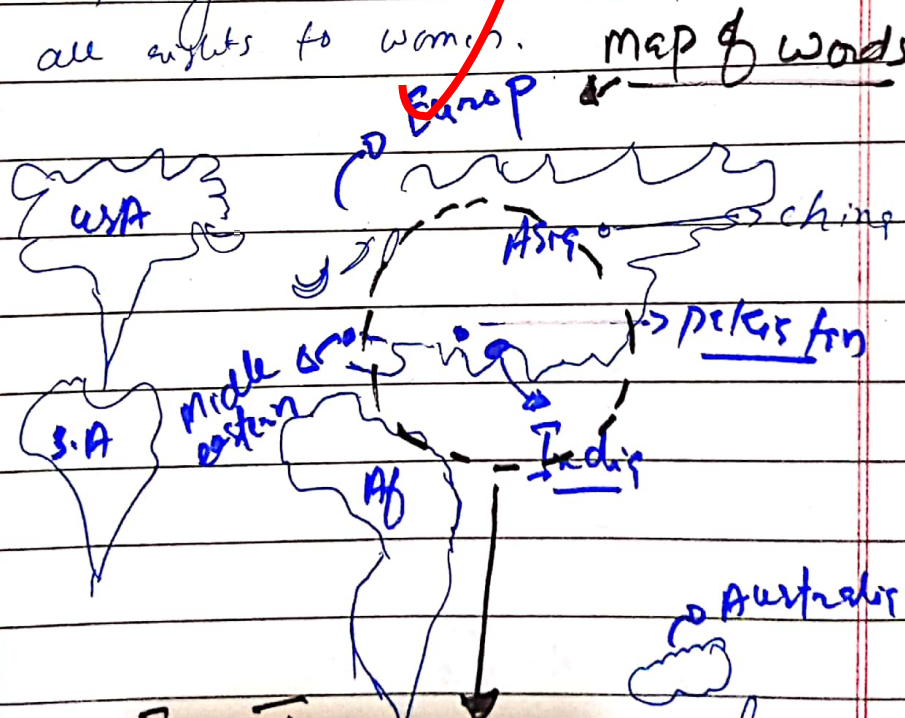 all rights to women.
Map of words
Europ
USA
Asia
China
Pakistan
Middle
eastern
S.A
India
Af
Australia